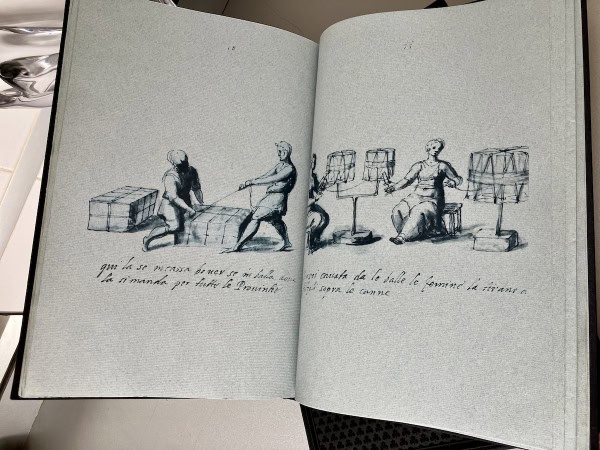 10
qui la se incassa hover se in balla
la si manda per tutte le Provintie
11
cavata da le balle le femine la tirano
sopra le canne